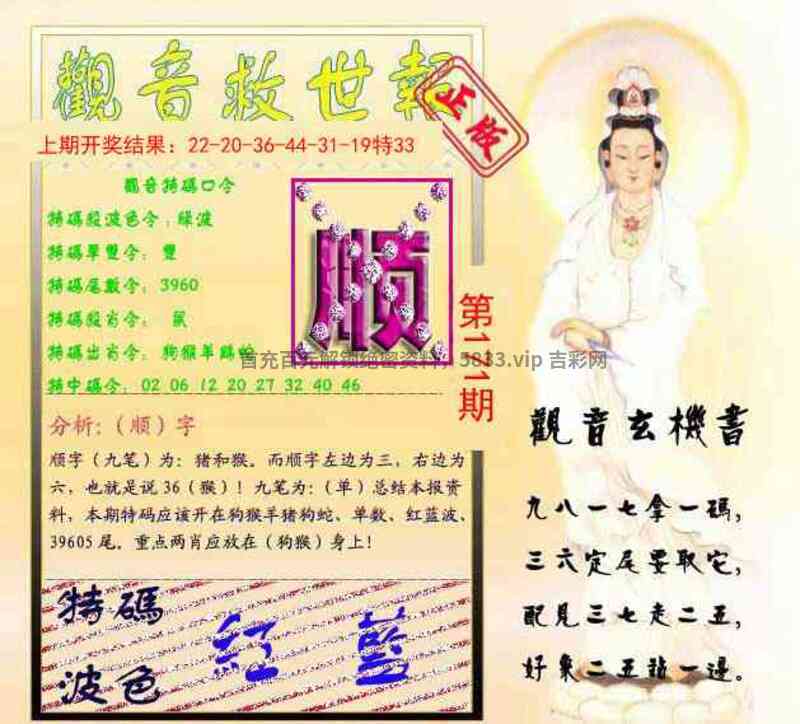 觀音救世報
正版
上期开奖结果：22-20-36-44-31-19特33
觀音特碼口令
特碼殺波色令：綠波
特碼單雙令： 雙
特碼尾數令：3960
特碼殺肖令： 鼠
特碼出肖令： 狗猴羊豬蛇
特中碼令：02 06 12 20 27 32 40 46
顺
第111期
首充百元解锁绝密资料，5833.vip 吉彩网
分析：（顺）字
顺字（九笔）为：猪和猴。而顺字左边为三，右边为
六，也就是说36（猴）！九笔为：（单）总结本报资
料，本期特码应该开在狗猴羊猪狗蛇、单数、红蓝波、
39605尾。重点两肖应放在（狗猴）身上！
特碼
波色
紅 藍
觀音玄機書
九八一七拿一碼，
三六定尾要取它，
配見三七走二五，
好象二五站一邊。